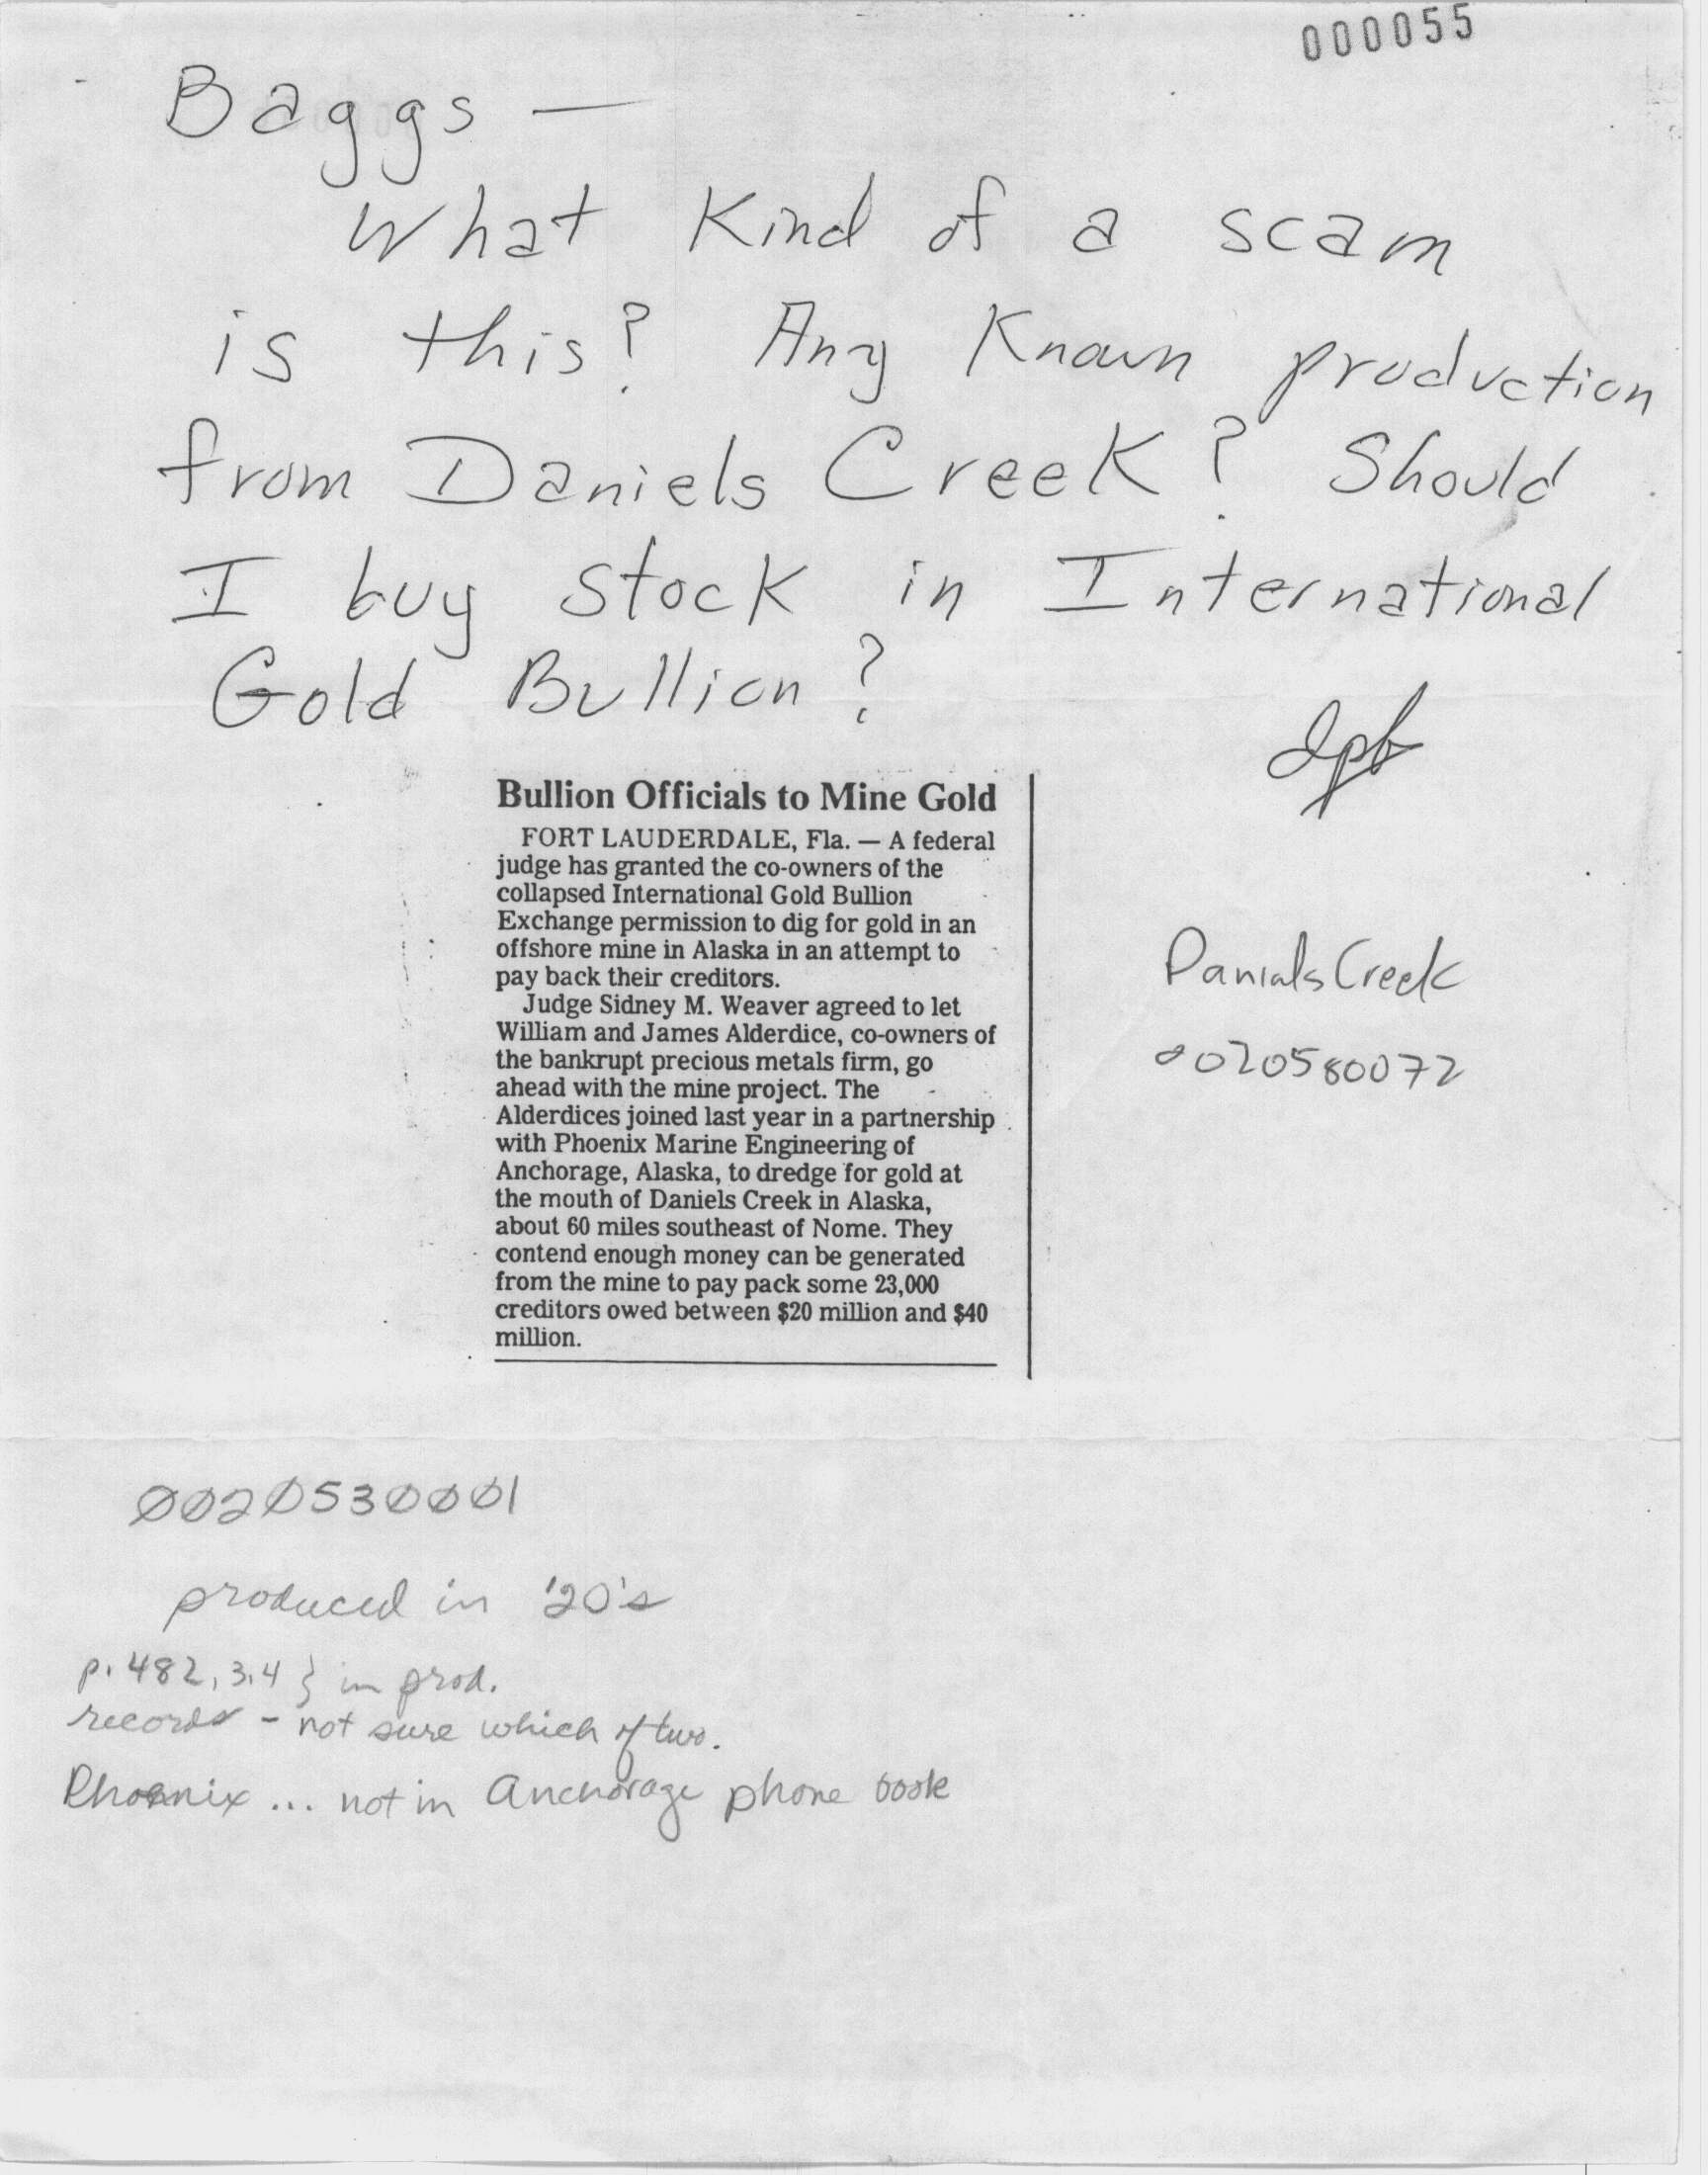 000055
Baggs —
What Kind of a scam
is this? Any Known production
from Daniels Creek? Should
I buy stock in International
Gold Bullion?
dpb
Bullion Officials to Mine Gold
FORT LAUDERDALE, Fla. — A federal
judge has granted the co-owners of the
collapsed International Gold Bullion
Exchange permission to dig for gold in an
offshore mine in Alaska in an attempt to
pay back their creditors.
Judge Sidney M. Weaver agreed to let
William and James Alderdice, co-owners of
the bankrupt precious metals firm, go
ahead with the mine project. The
Alderdices joined last year in a partnership
with Phoenix Marine Engineering of
Anchorage, Alaska, to dredge for gold at
the mouth of Daniels Creek in Alaska,
about 60 miles southeast of Nome. They
contend enough money can be generated
from the mine to pay pack some 23,000
creditors owed between $20 million and $40
million.
Danials Creek
0020580072
0020530001
produced in '20's
p. 482, 3, 4 } in prod.
records - not sure which of two.
Phoenix ... not in Anchorage phone book